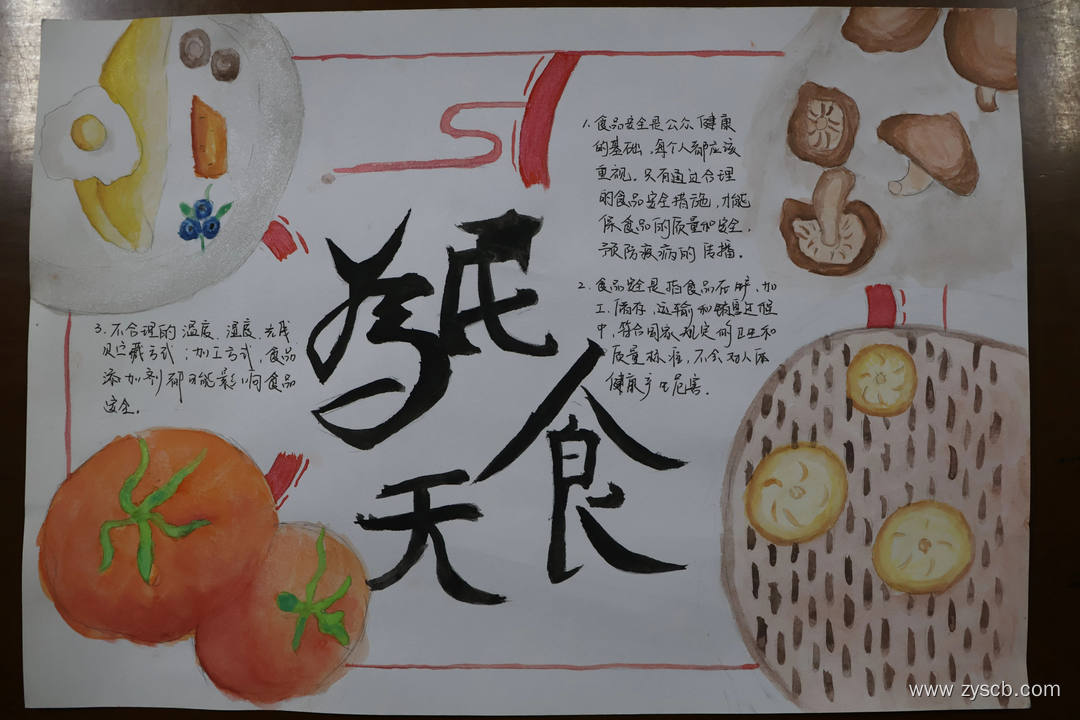 民
以
食
为
天
1. 食品安全是公众健康
的基础，每个人都应该
重视。只有通过合理
的食品安全措施，才能
保食品的质量和安全，
预防疫病的传播。
2. 食品安全是指食品在生产、加
工、储存、运输和销售过程
中，符合国家规定的卫生和
质量标准，不会对人体
健康产生危害。
3. 不合理的温度、湿度、光线
贮藏方式；加工方式，食品
添加剂都可能影响食品
安全。
www.zyscb.com